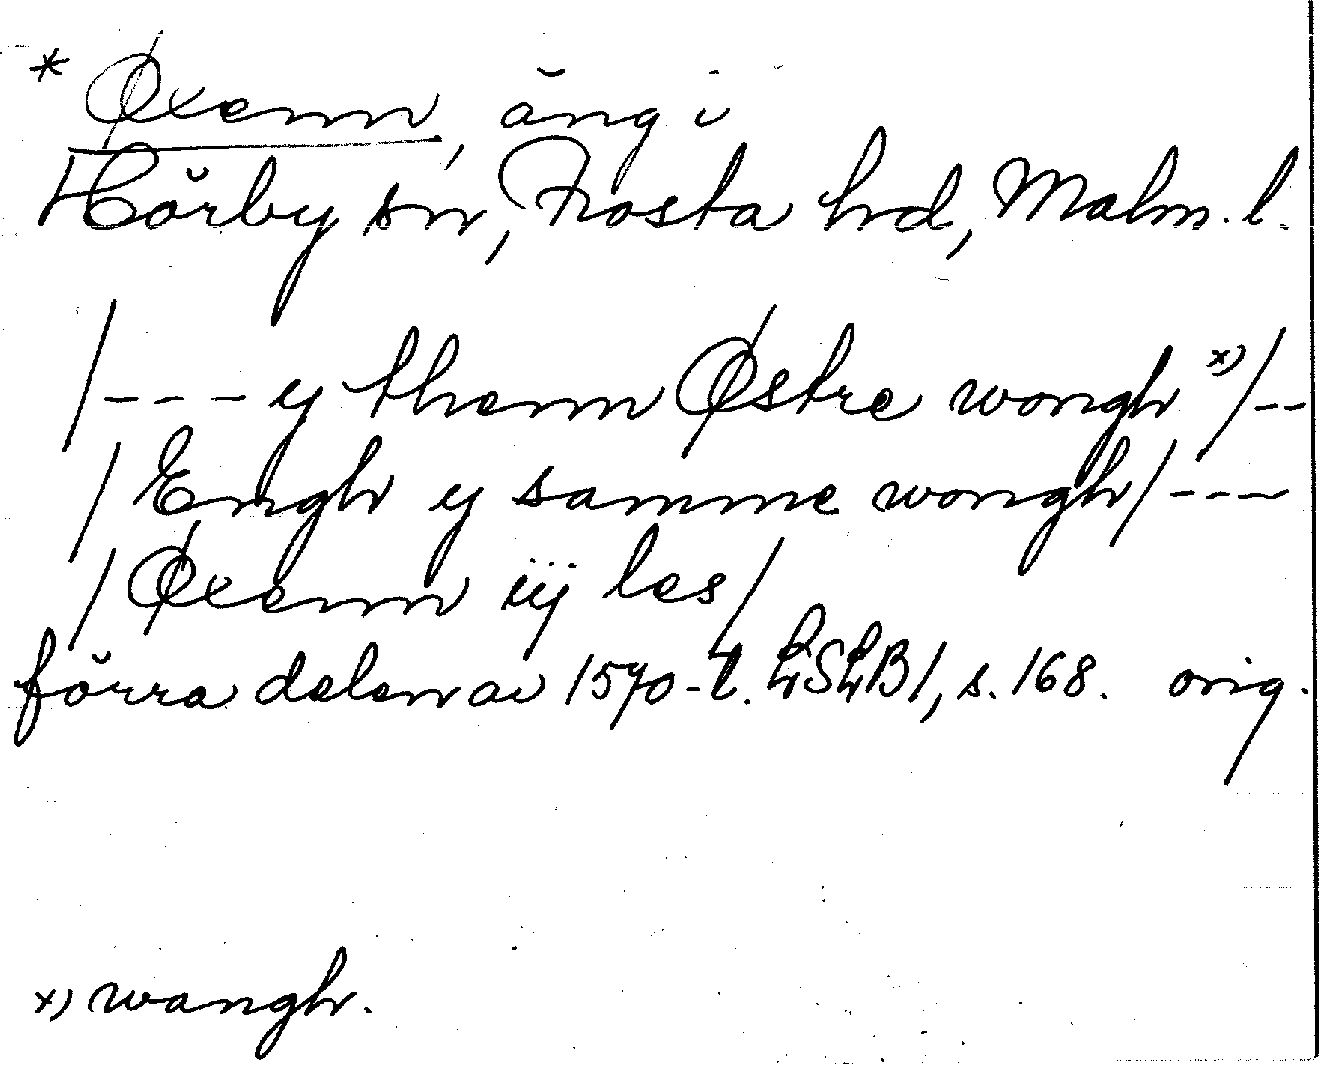 * Øxenn, äng i
Hörby sn, Frosta hd, Malm. l.
/---y thenn Østre wongh x)/--
/Engh y samme wongh/---
/Øxenn iij les/
förra delen av 1570-t. LSLB1, s. 168. orig.
x) wangh.